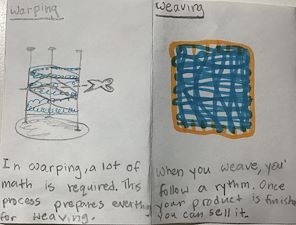 Warping
In warping, a lot of
math is required. This
process prepares everthing
for weaving.
Weaving
When you weave, you'
follow a rythm. Once
your product is finishe
you can sell it.